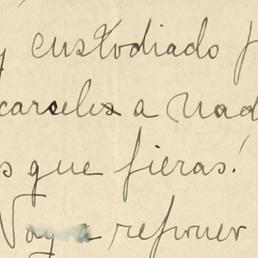 y custodiado p
carselos a nad
s que fieras!
Voy a refoner